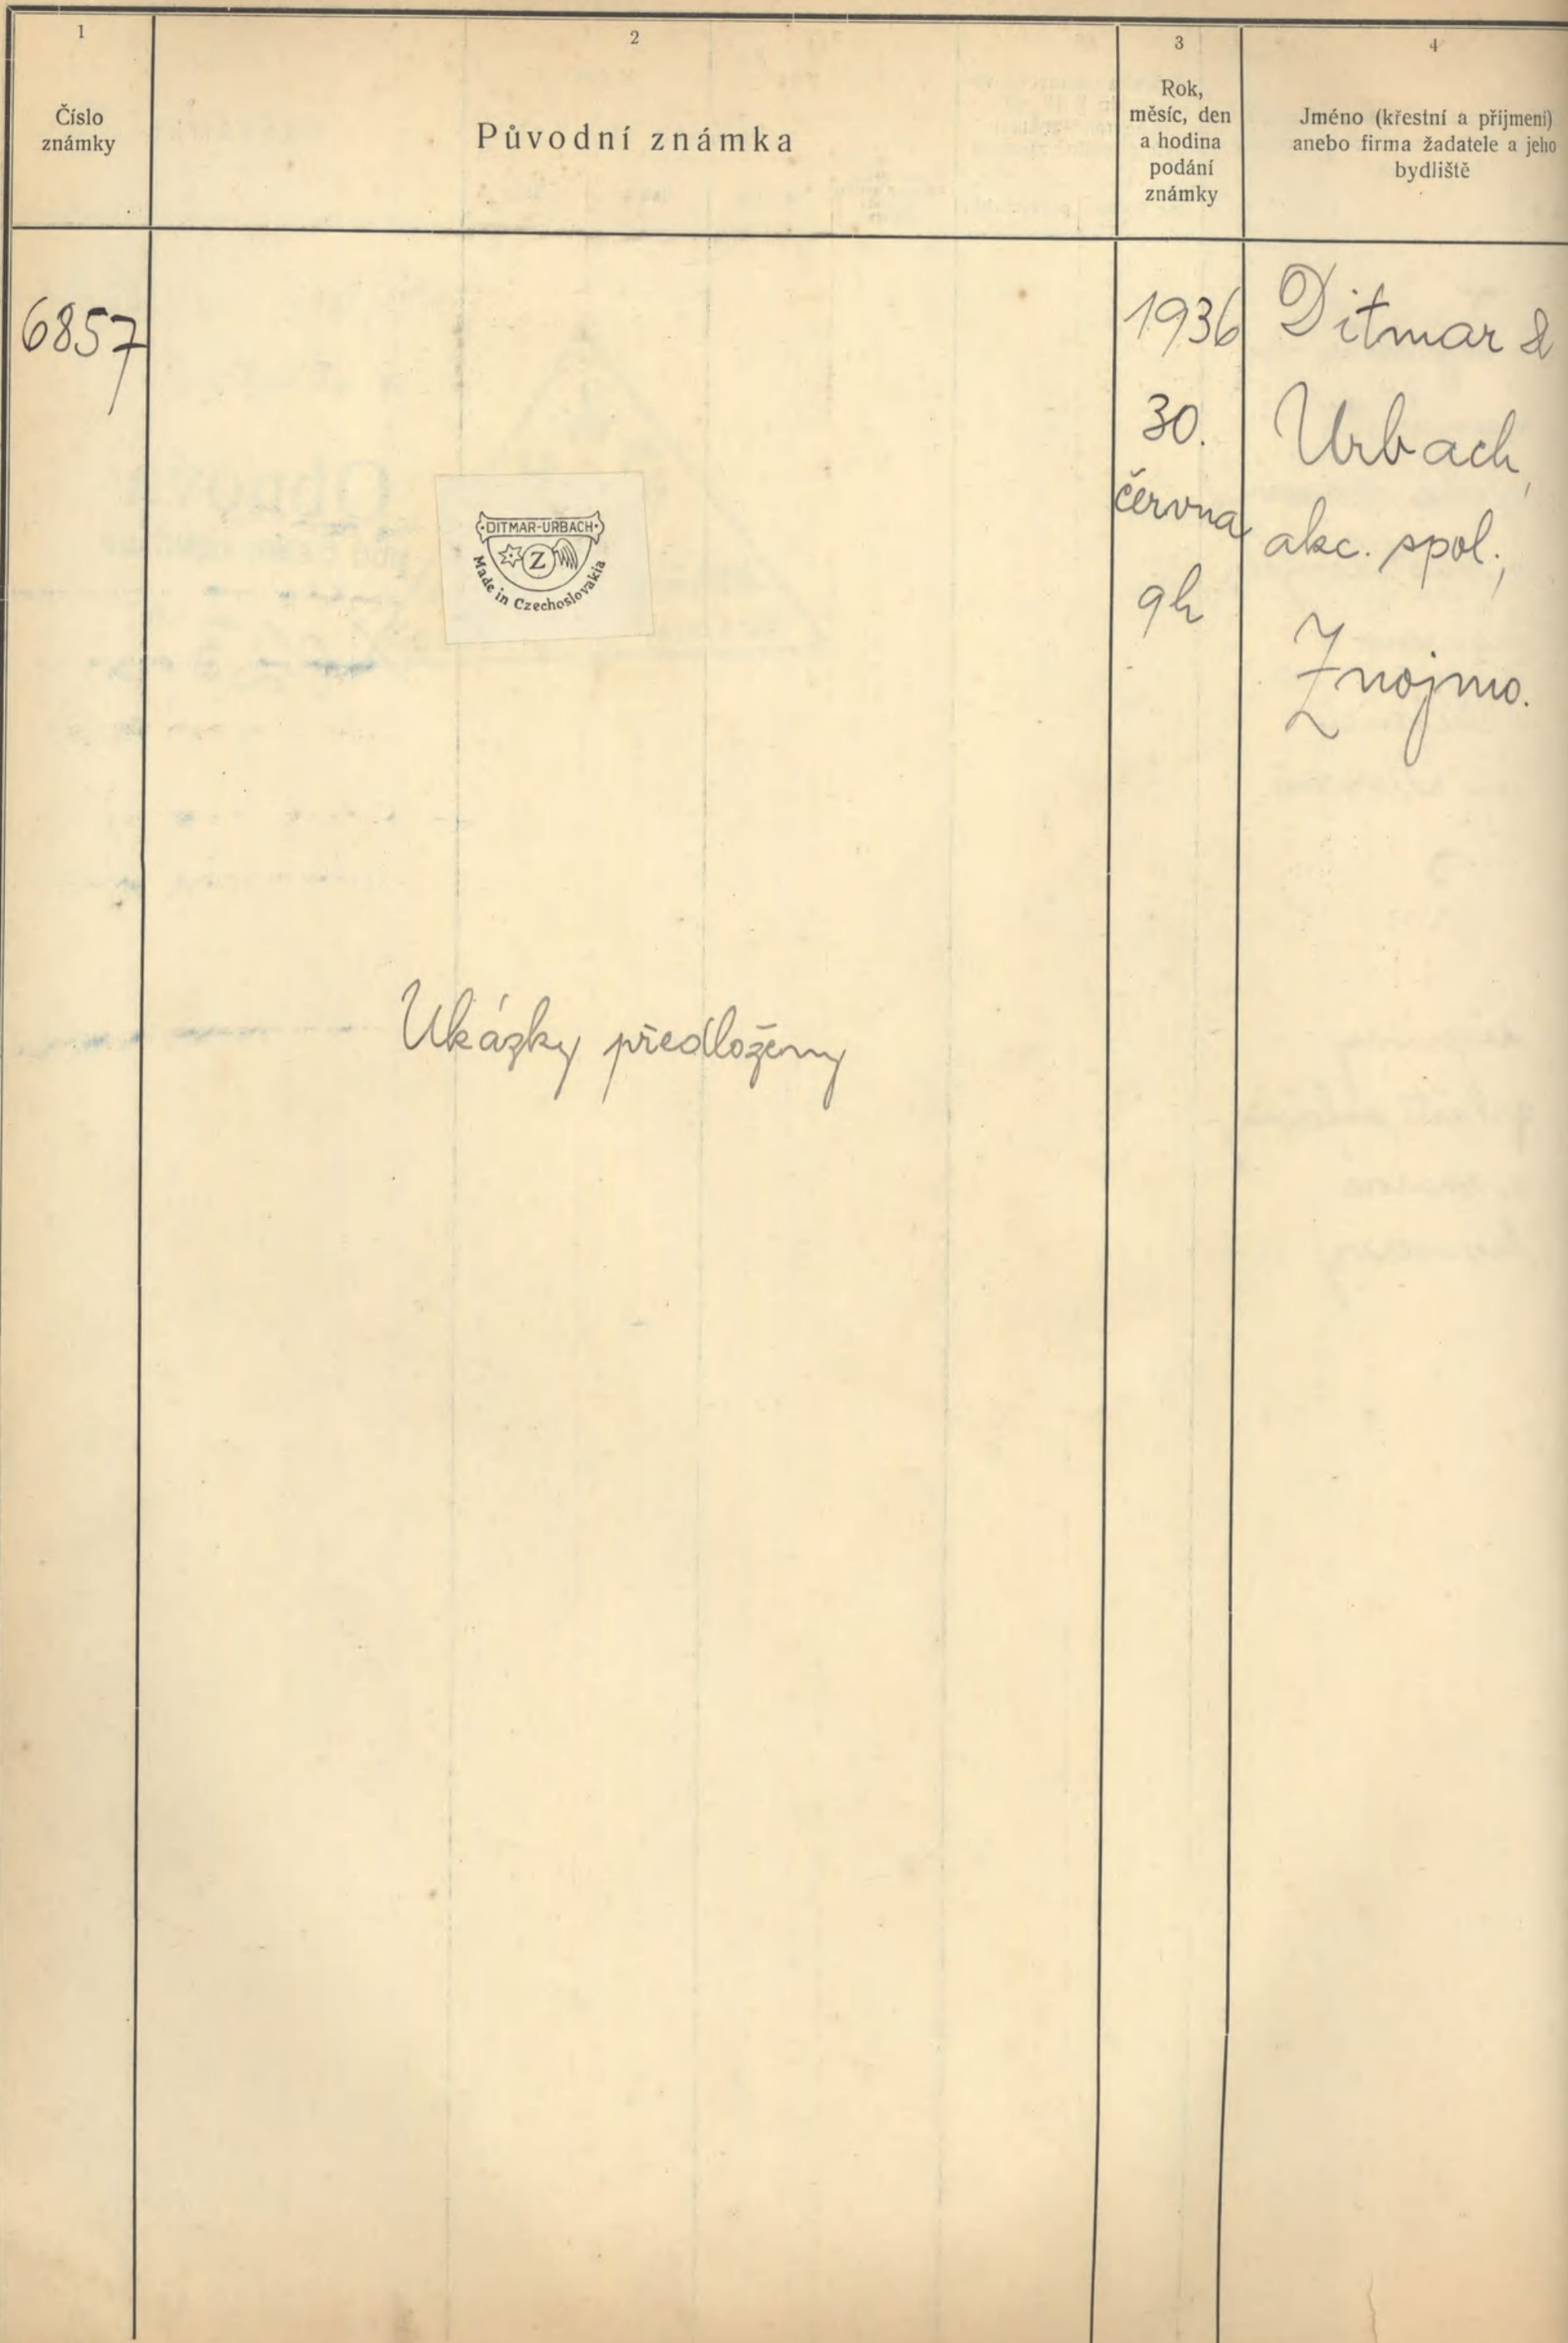 1
2
3
4
Číslo
známky
Původní známka
Rok,
měsíc, den
a hodina
podání
známky
Jméno (křestní a příjmení)
anebo firma žadatele a jeho
bydliště
6857
DITMAR-URBACH
Z
Made in Czechoslovakia
Ukázky předloženy
1936
30.
června
9h
Ditmar &
Urbach,
akc. spol.,
Znojmo.